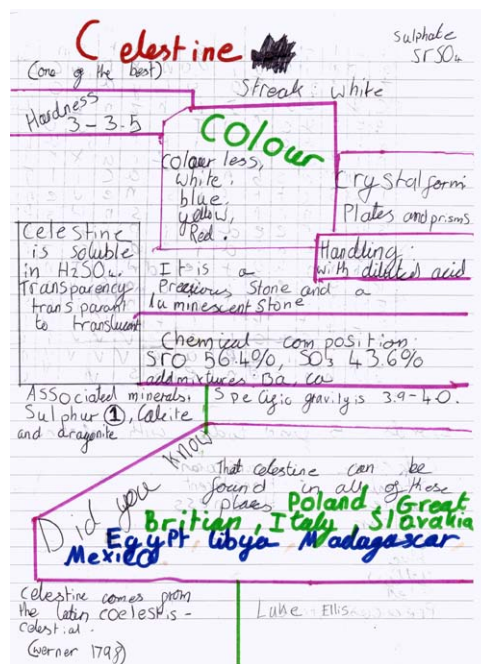 Celestine
sulphate
SrSO4
(one of the best)
Streak: white
Hardness
3-3.5
Colour
colourless,
white,
blue,
yellow,
Red.
Crystal form:
Plates and prisms
Celestine
is soluble
in H2SO4.
Transparency
transparant
to translucent
Handling:
with diluted acid
It is a
Precious Stone and a
luminescent Stone
Chemical composition:
SrO 56.4%, SO3 43.6%
addmixtures: Ba, ca
Associated minerals.
Sulphur ①, Calcite
and aragonite
Specific gravity is 3.9-4.0.
Did you know
That celestine can be
found in all of these
places
Poland, Great
Britian, Italy, Slovakia
Egypt libya Madagascar
Mexico
celestine comes from
the latin coelestis -
celestial.
(werner 1798)
Luke Ellis